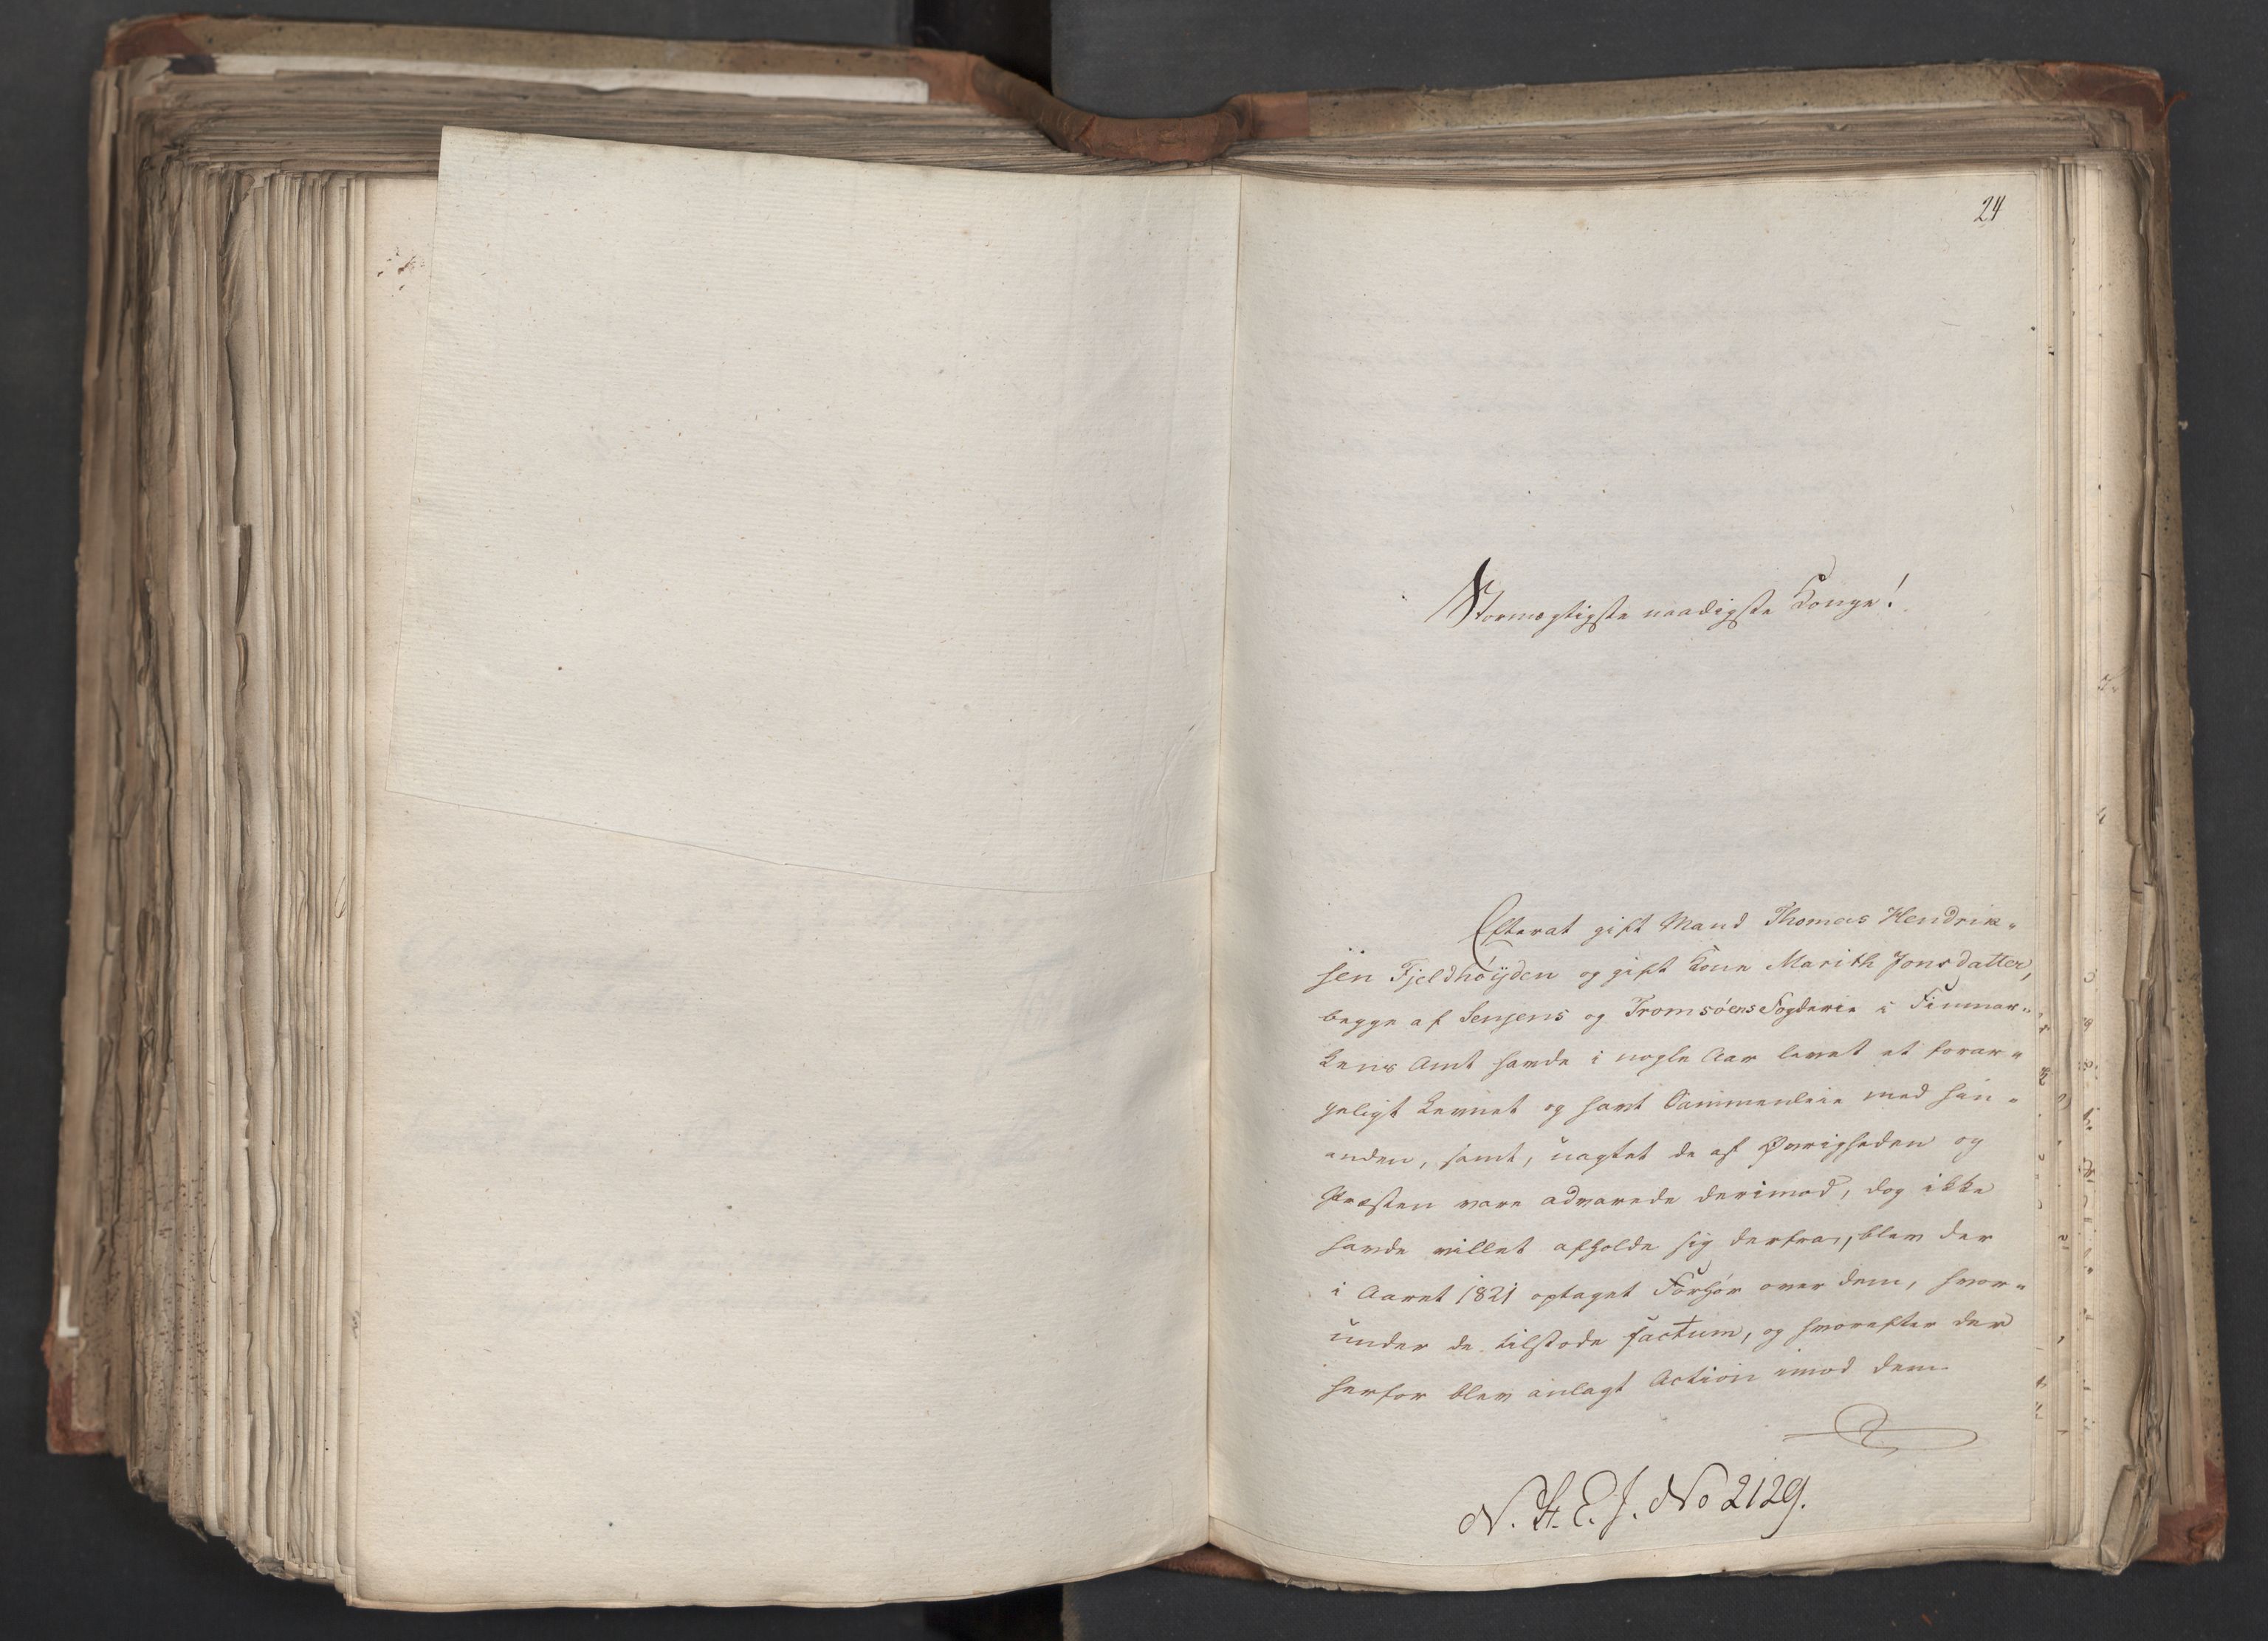 24
Stormægtigste naadigste Konge!
Efterat gift Mand Thomas Hendrik-
sen Fjeldhøyden og gift Kone Marith Jonsdatter,
begge af Senjens og Tromsøens Fogderie i Finmar-
kens Amt havde i nogle Aar levet et forar-
geligt Levnet og havt Sammenleie med hin-
anden, samt, uagtet de af Øvrigheden og
Præsten vare advarede derimod, dog ikke
havde villet afholde sig derfra, blev der
i Aaret 1821 optaget Forhør over dem, hvor-
under de tilstode factum, og hvorefter der
herfor blev anlagt Action imod dem
N. St. E. J. No 2129.